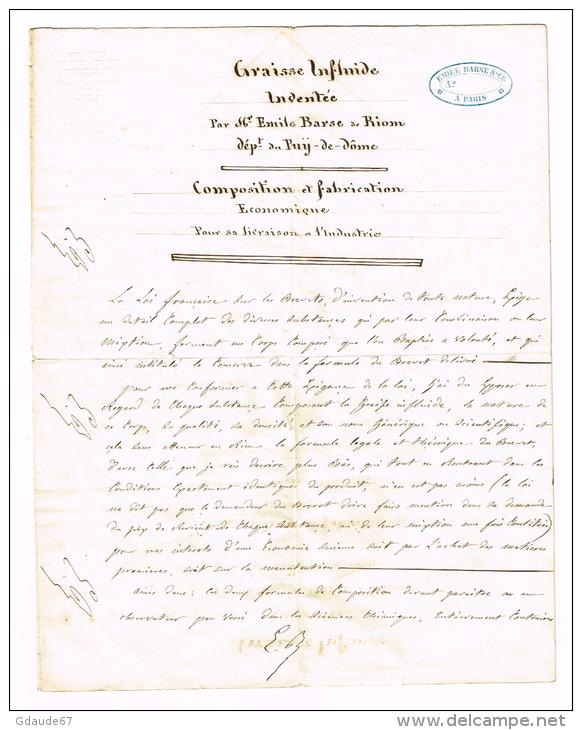 Graisse Influide
Inventée
Par Mr. Emile Barse de Riom
dépt. du Puÿ-de-dôme
EMILE BARSE & Cie
No
A PARIS
Composition et fabrication
Economique
Pour sa livraison a l'Industrie
La Loi française sur les Brevets, d'invention de toute nature, Exige
un detail Complet des diverses substances qui par leur Combinaison ou leur
mixtion, forment un Corps Composé que l'on Baptise a volonté, et qui
ainsi intitulé le Conserve dans la formule du Brevet délivré
pour me Conformer a Cette Exigence de la loi, j'ai du Exposer en
Regard de Chaque substance Composant la Graisse influide, la nature de
ce Corps, sa qualité, sa densité et son nom Générique ou Scientifique; et
cela sans attenuer en Rien la formule legale et théorique du Brevet,
d'avec Celle que je vais decrire plus Bas, qui tout en Rentrant dans les
Conditions Exactement identiques du produit, n'en est pas moins (la loi
ne dit pas que le demandeur du Brevet doive faire mention dans sa demande
du prix de Revient de Chaque substance, ni de leur mixtion une fois
pour vos interets d'une Economie soit par L'achat des matieres
premieres, soit sur la manutention
ainsi donc: ces deux formules de Composition devant paraitre a un
observateur peu versé dans les Sciences Chimiques, Entierement Contraires
E. B
Gdaude67